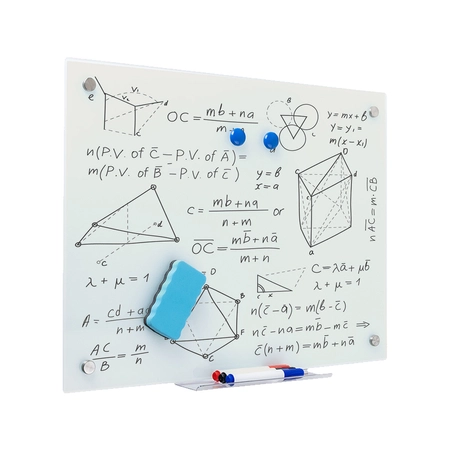 e V₁ V₂ d
OC = mb + na / m
B
C
y = mx + b
y = y₁ =
m(x - x₁)
n(P.V. of C̅ - P.V. of A̅) =
m(P.V. of B̅ - P.V. of c̅)
y = b
x = a
c = mb + na / n + m or
O̅C̅ = mb̅ + na̅ / m + n
C
D
d
a
n A̅C̅ = m · C̅B̅
d
c
λ + μ = 1
C = λa̅ + μb̅
λ + μ = 1
c x
A = cd + a / n + m
D
B
F
C
n(c̅ - a) = m(b - c̅)
nc̅ - na = mb - mc̅ ⇒
c̅(n + m) = mb̅ + na̅
AC / B = m / n